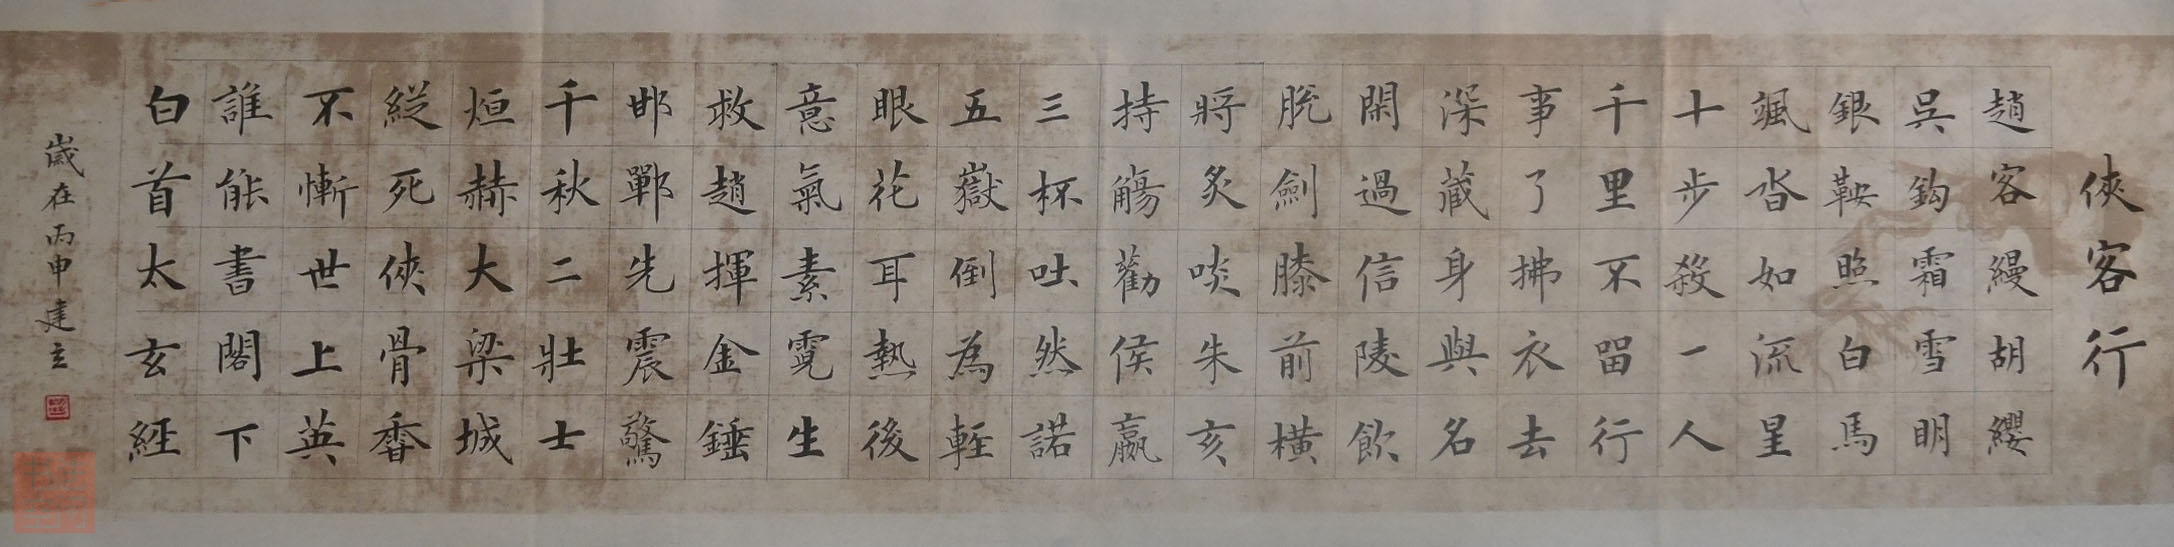 俠客行
趙客縵胡纓
吳鈎霜雪明
銀鞍照白馬
颯沓如流星
十步殺一人
千里不留行
事了拂衣去
深藏身與名
閑過信陵飲
脫劍膝前橫
將炙啖朱亥
持觴勸侯嬴
三杯吐然諾
五嶽倒為輕
眼花耳熱後
意氣素霓生
救趙揮金錘
邯鄲先震驚
千秋二壯士
烜赫大梁城
縱死俠骨香
不慚世上英
誰能書閣下
白首太玄經
歲在丙申建立